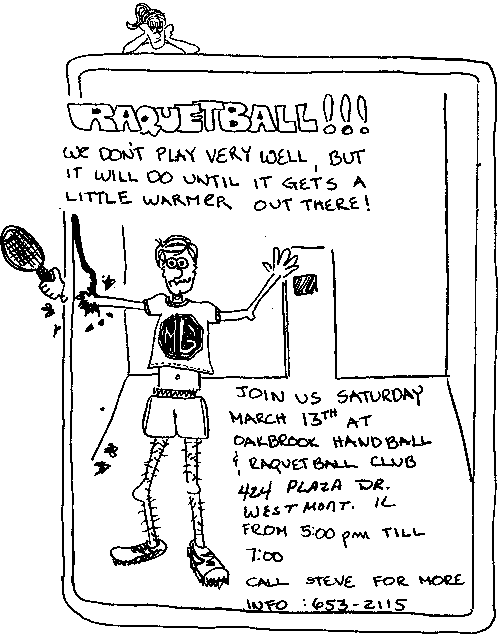 RAQUETBALL!!!
WE DON'T PLAY VERY WELL, BUT
IT WILL DO UNTIL IT GETS A
LITTLE WARMER OUT THERE!
MG
JOIN US SATURDAY
MARCH 13TH AT
OAKBROOK HANDBALL
& RAQUETBALL CLUB
424 PLAZA DR.
WESTMONT. IL
FROM 5:00 pm TILL
7:00
CALL STEVE FOR MORE
INFO : 653-2115